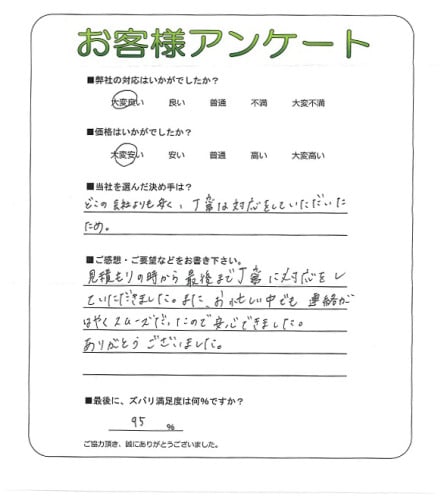 お客様アンケート
■弊社の対応はいかがでしたか？
大変良い 良い 普通 不満 大変不満
■価格はいかがでしたか？
大変安い 安い 普通 高い 大変高い
■当社を選んだ決め手は？
どこの会社よりも安く、丁寧な対応をしていただいた
ため。
■ご感想・ご要望などをお書き下さい。
見積もりの時から最後まで丁寧に対応をし
ていただきました。また、お忙しい中でも連絡が
はやくスムーズだったので安心できました。
ありがとうございました。
■最後に、ズバリ満足度は何％ですか？
95 ％
ご協力頂き、誠にありがとうございました。